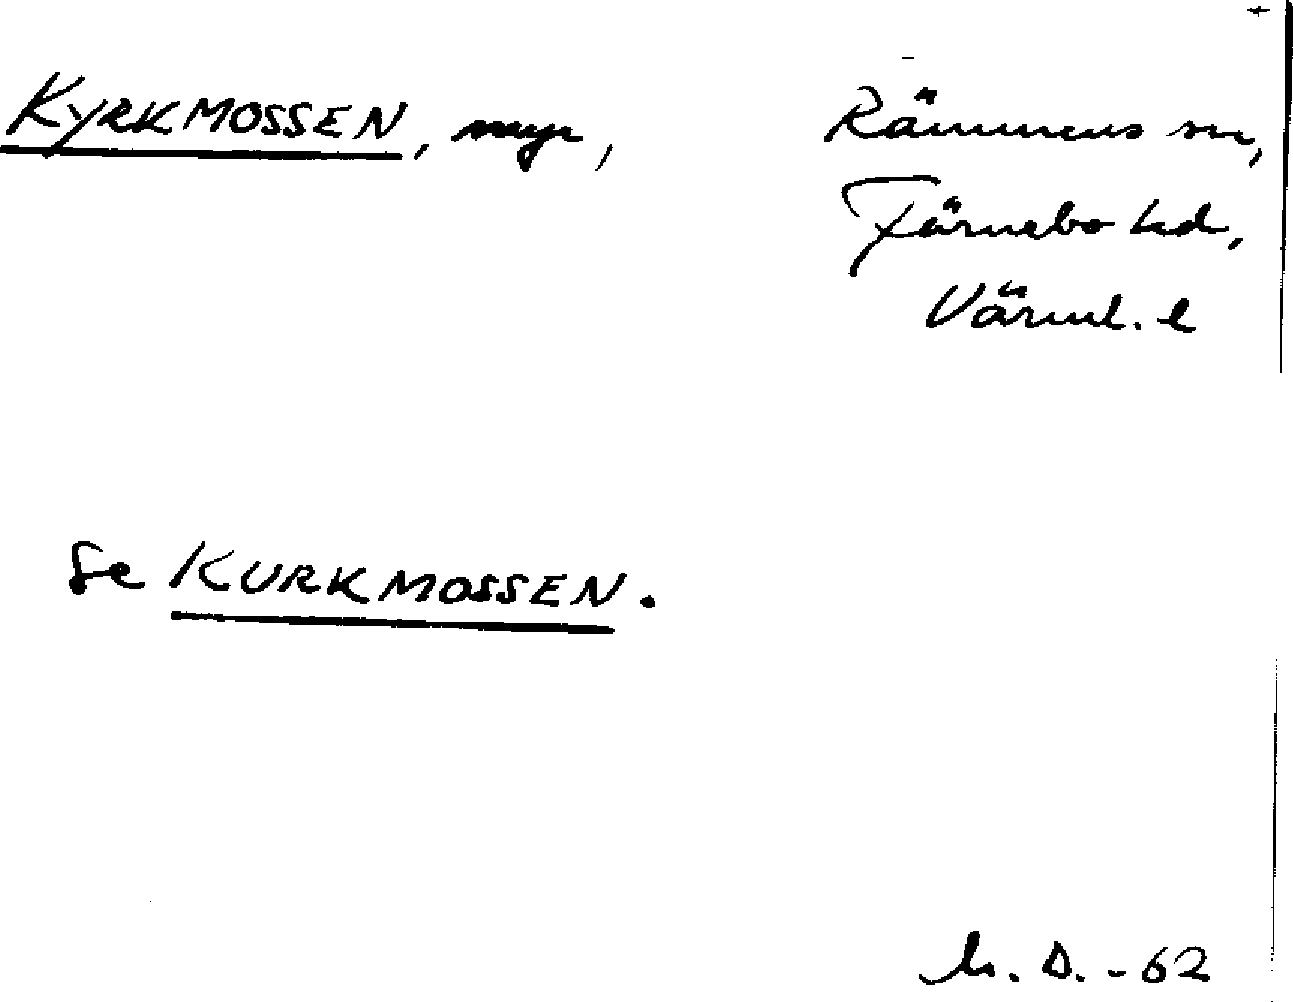 KYRKMOSSEN, myr, Rämmens sn,
Färnebo hd,
Värml. l
Se KURKMOSSEN.
M. D. -62